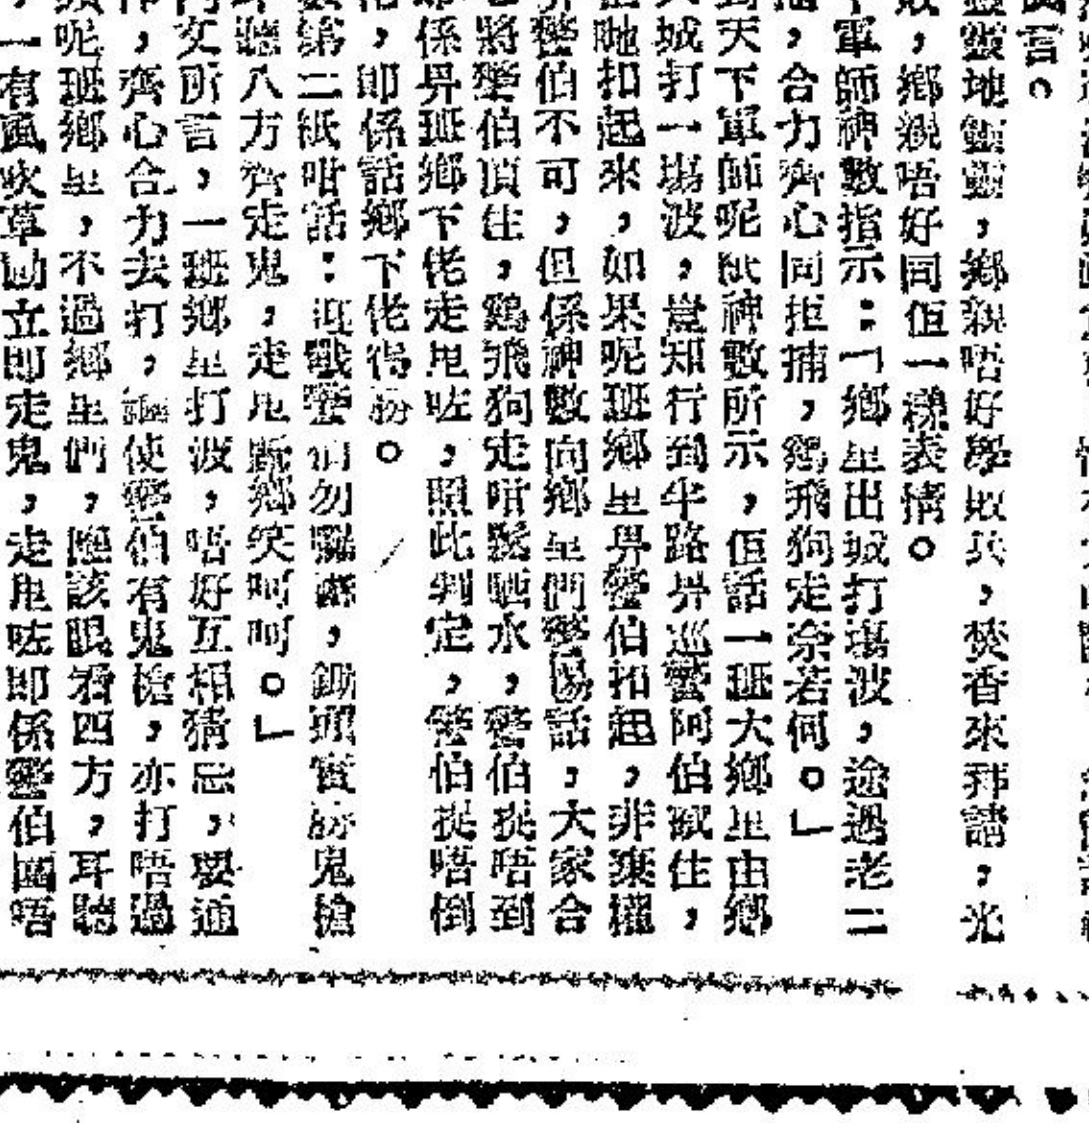 言。
靈靈地靈靈,鄉親唔好學敗兵,焚香來拜請,光
敗,鄉親唔好同佢一樣表情。
軍師神數指示:「鄉里出城打場波,途遇老二
,合力齊心同拒捕,鷄飛狗走奈若何。」
到天下軍師呢紙神數所示,佢話一班大鄉里由鄉
城打一場波,豈知行到半路畀巡警阿伯截住,
哋扣起來,如果呢班鄉里畀警伯拓起,非棄權
警伯不可,但係神數向鄉里們警惕話,大家合
將警伯頂住,鷄飛狗走咁鬆晒水,警伯捉唔到
係畀班鄉下佬走甩咗,照此判定,警伯捉唔倒
,即係話鄉下佬得勝。
第二紙咁話:迎戰警伯勿驚,鋤頭實勝鬼槍
聽八方齊走鬼,走甩歸鄉笑呵呵。」
文所言,一班鄉里打波,唔好互相猜忌,要通
,齊心合力去打,使警伯有鬼槍,亦打唔過
呢班鄉里,不過鄉里們,應該眼看四方,耳聽
一有風吹草動立即走鬼,走甩咗即係警伯圍唔